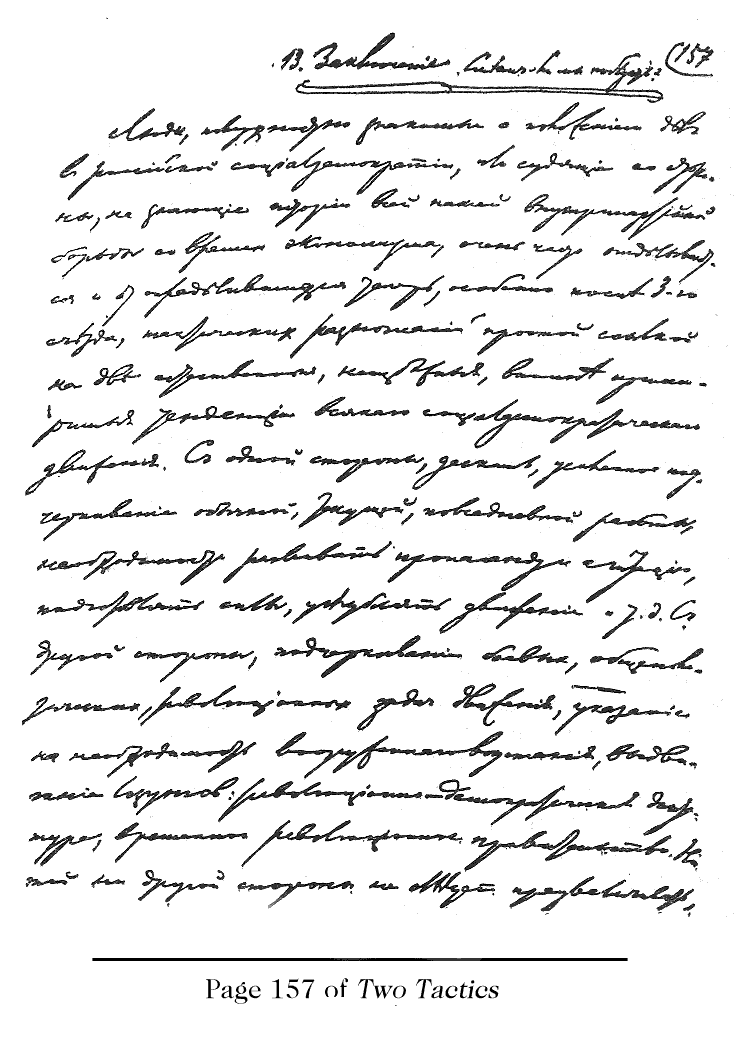 13. Заключение. Смеем-ли мы победить?
(157
Люди, поверхностно знакомые с положением дѣл
в российской социалдемократии, или судящие со сторо-
ны, не знающие истории всей нашей внутрипартийной
борьбы со времен экономизма, очень часто отдѣлывают-
ся и от опредѣлившихся теперь, особенно послѣ 3-го
съѣзда, тактических разногласий простой ссылкой
на двѣ естественныя, неизбѣжныя, вполнѣ прими-
римыя тенденции всякаго социалдемократическаго
движения. С одной стороны, дескать, усиленное под-
черкивание обычной, текущей, повседневной работы,
необходимости развивать пропаганду и агитацию,
подготовлять силы, углублять движение и т. д. С
другой стороны, подчеркивание боевых, общеполи-
тических, революционных задач движения, указание
на необходимость вооруженнаго восстания, выдви-
гание лозунгов: революционно-демократическая дикта-
тура, временное революционное правительство. Ни
той ни другой стороны не слѣдует преувеличивать,
Page 157 of Two Tactics